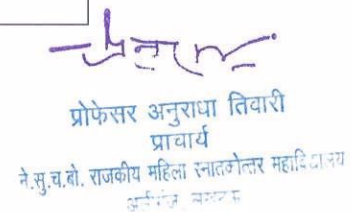 प्रोफेसर अनुराधा तिवारी
प्राचार्य
ने.सु.च.बो. राजकीय महिला स्नातकोत्तर महाविद्यालय